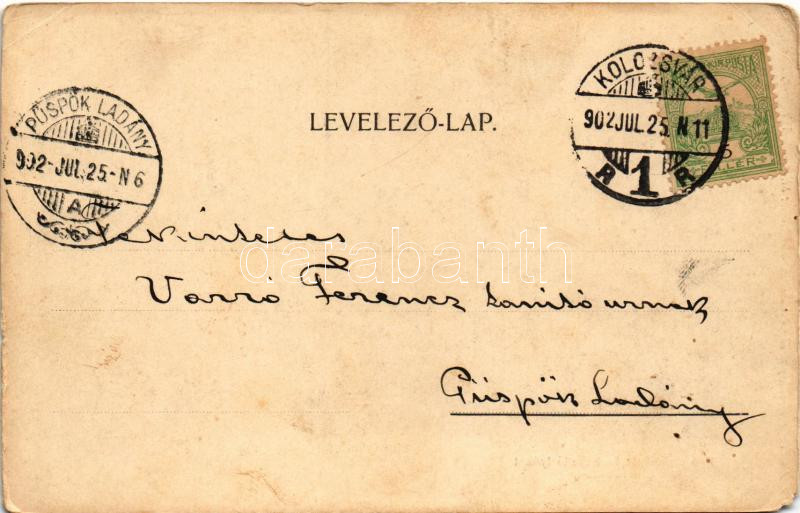 LEVELEZŐ-LAP.
KOLOZSVÁR
902 JUL. 25. N 11
R 1 R
PÜSPÖK LADÁNY
902-JUL.25.-N 6
A
5
darabanth
Tekintetes
Varró Ferencz tanító urnak
Püspök Ladány